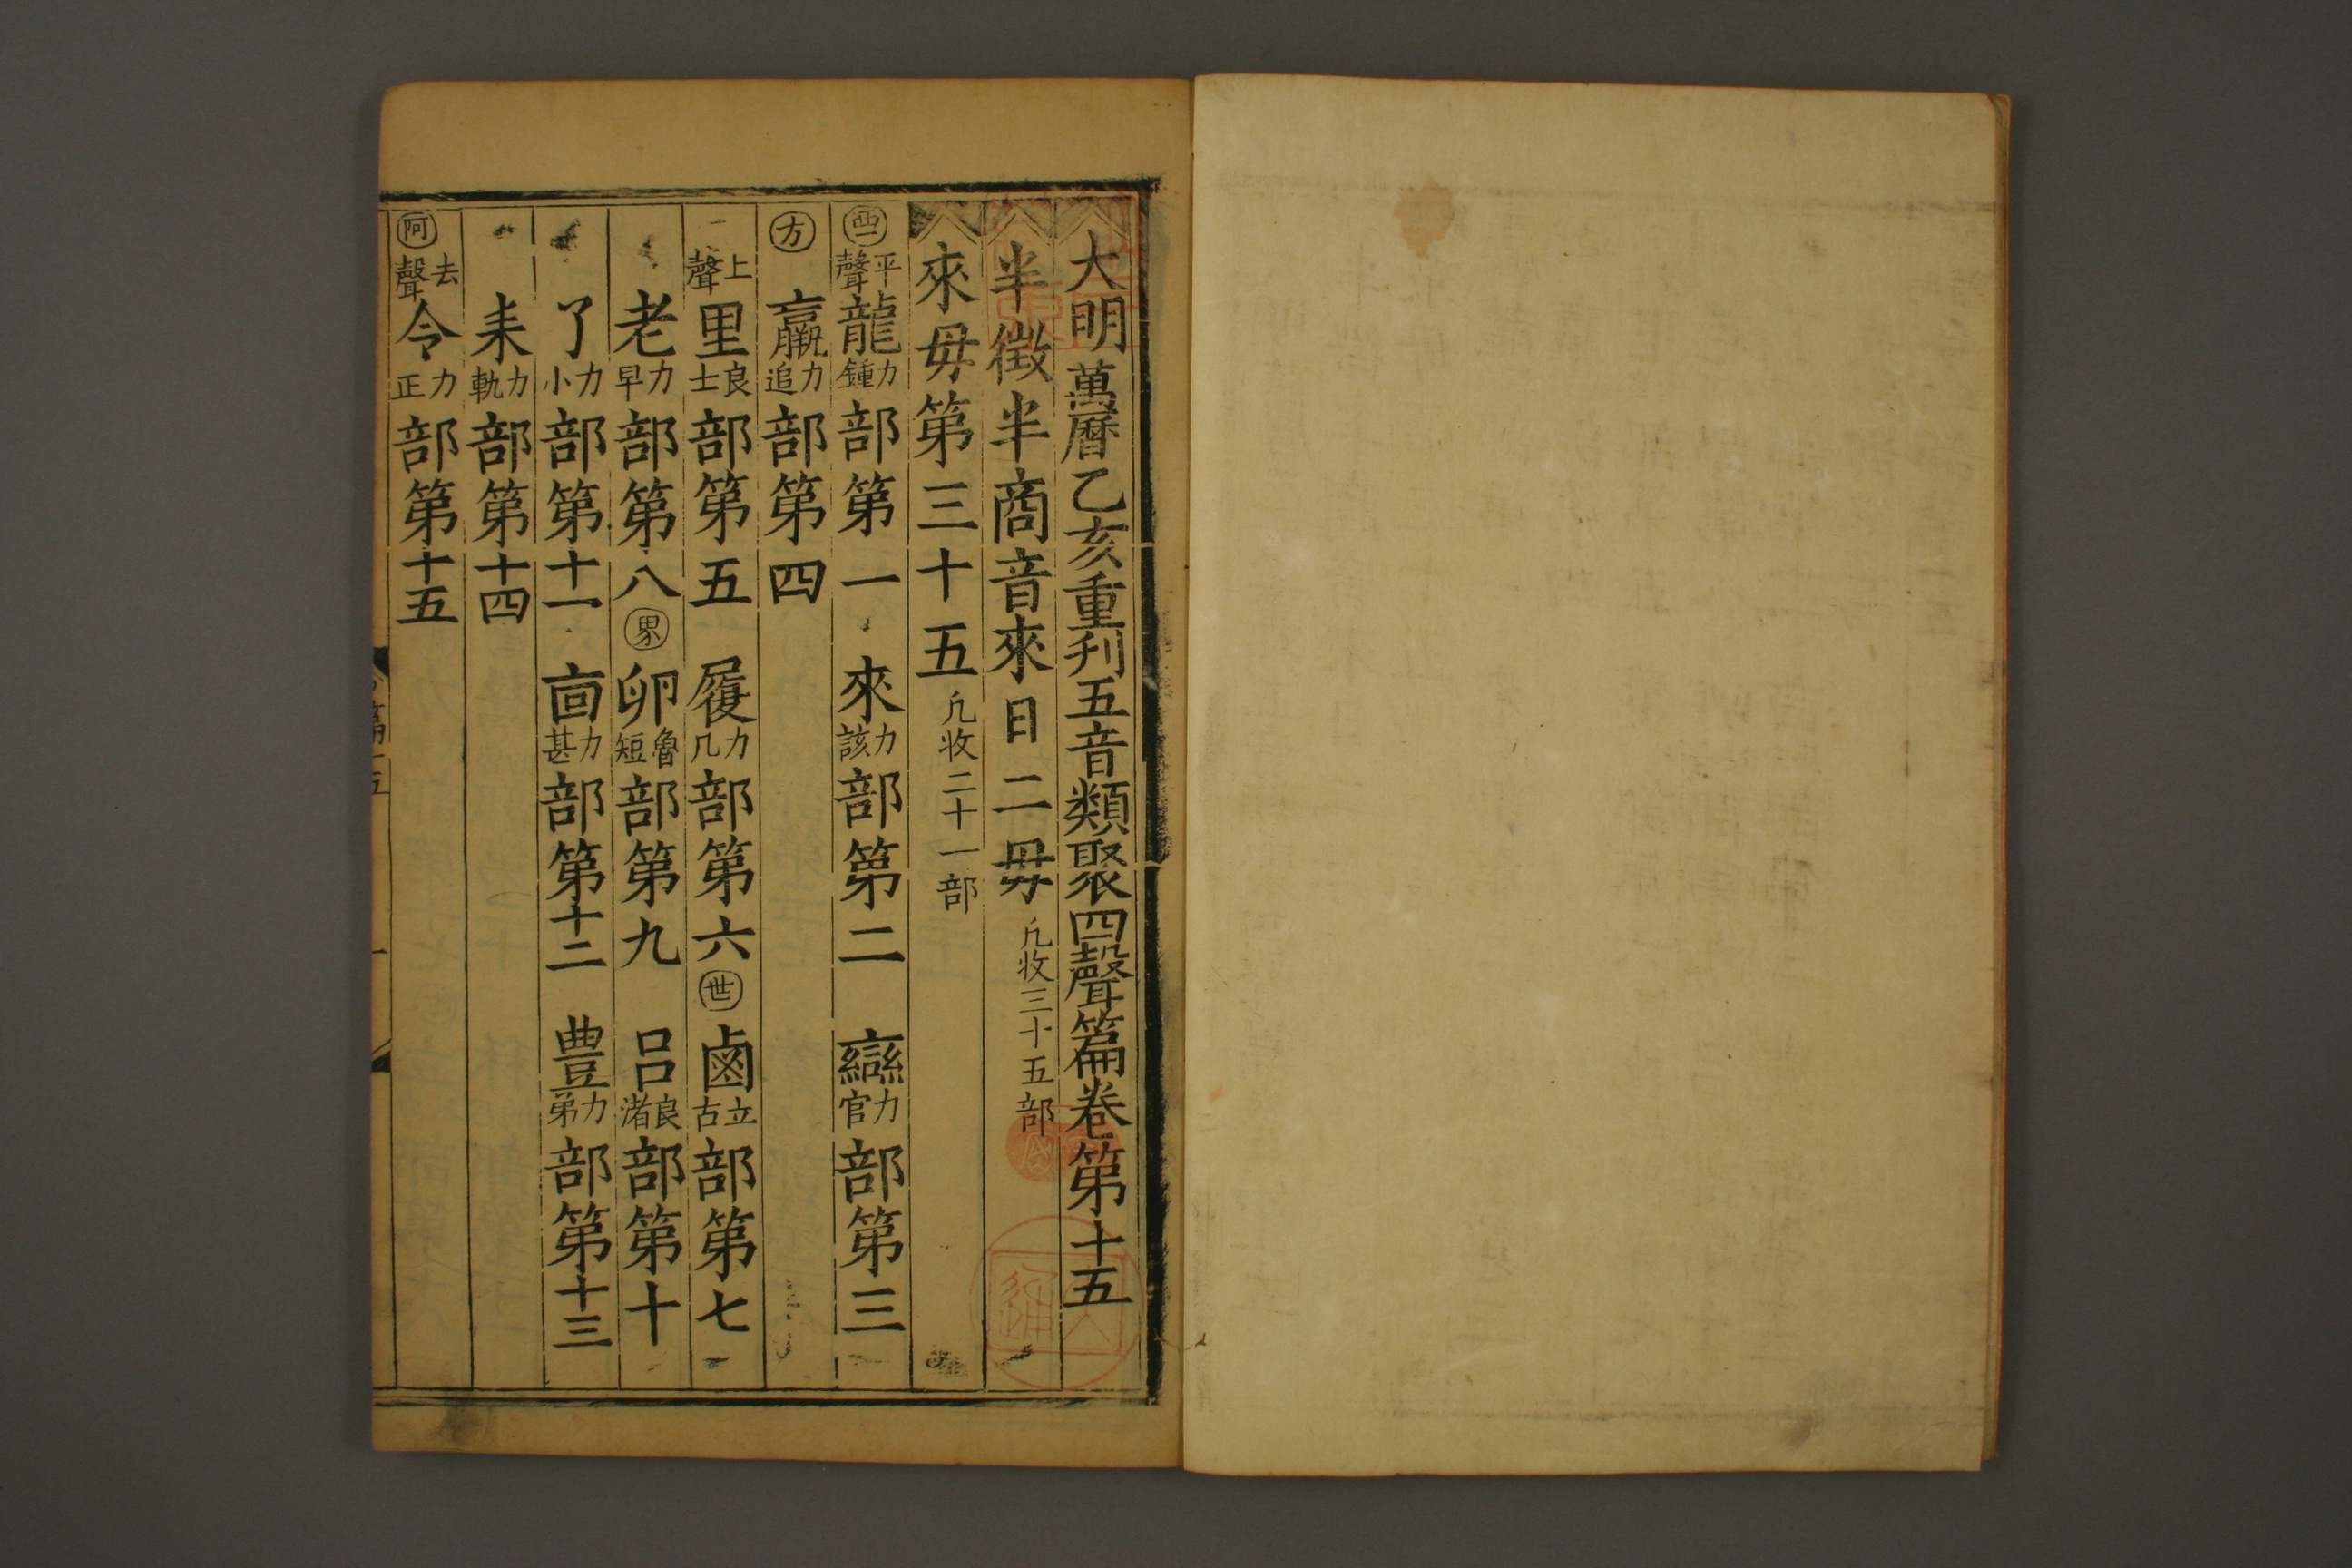 大明萬曆乙亥重刋五音類聚四聲篇卷第十五
半徵半商音來日二毋凡收三十五部
來毋第三十五凡收二十一部
西平聲龍力鍾部第一來力該部第二䜌力官部第三
方羸力追部第四
上聲里良士部第五履力几部第六世鹵立古部第七
老力早部第八界卵魯短部第九呂良渚部第十
了力小部第十一㐭力甚部第十二豊力弟部第十三
耒力軌部第十四
阿去聲令力正部第十五
篇十五
一